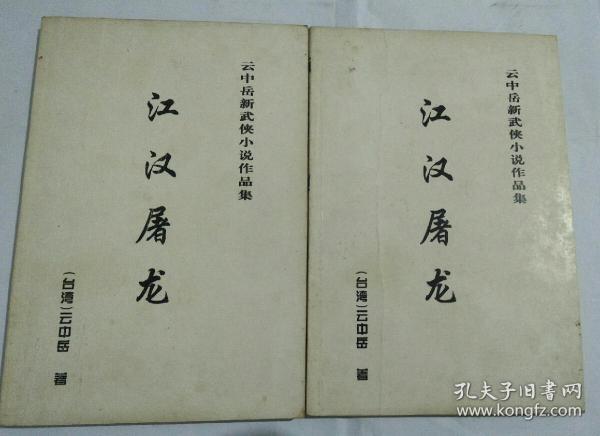 云中岳新武侠小说作品集
江汉屠龙
（台湾）云中岳 著
云中岳新武侠小说作品集
江汉屠龙
（台湾）云中岳 著
孔夫子旧书网
www.kongfz.com